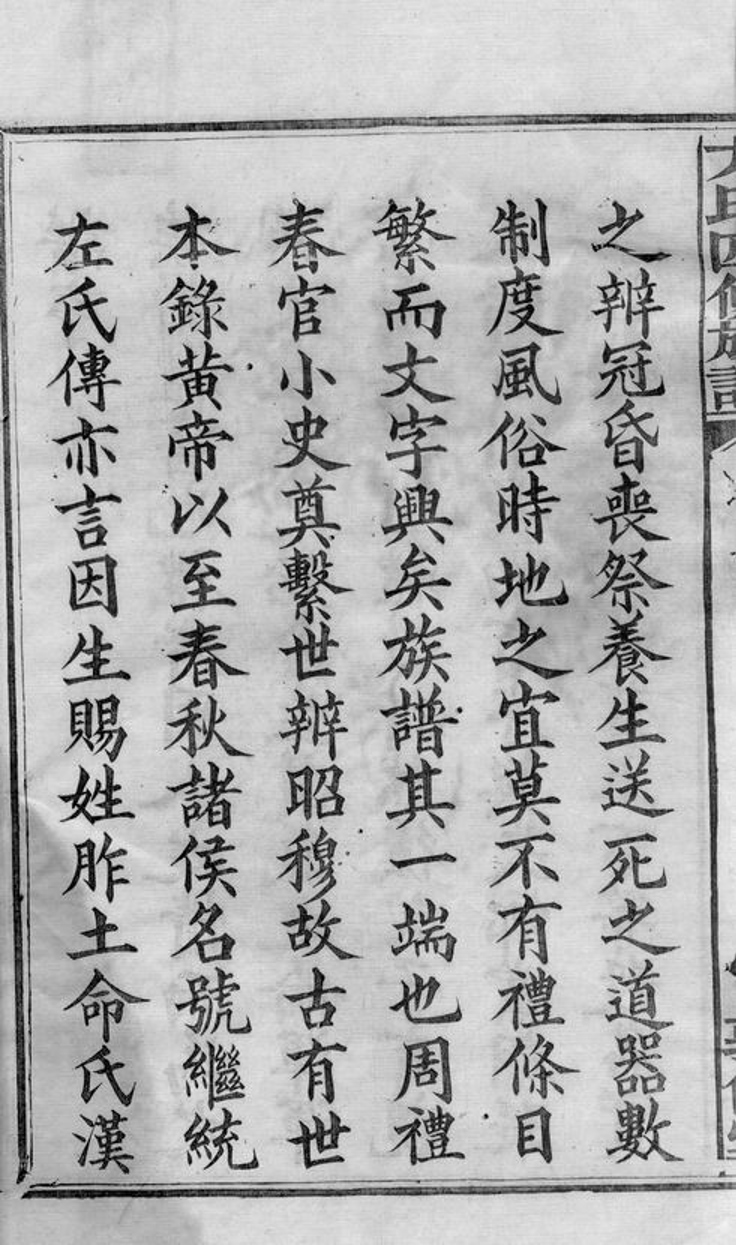 之辧冠昏喪祭養生送死之道器數
制度風俗時地之宜莫不有禮條目
繁而文字興矣族譜其一端也周禮
春官小史奠繫世辧昭穆故古有世
本錄黃帝以至春秋諸侯名號繼統
左氏傳亦言因生賜姓胙土命氏漢